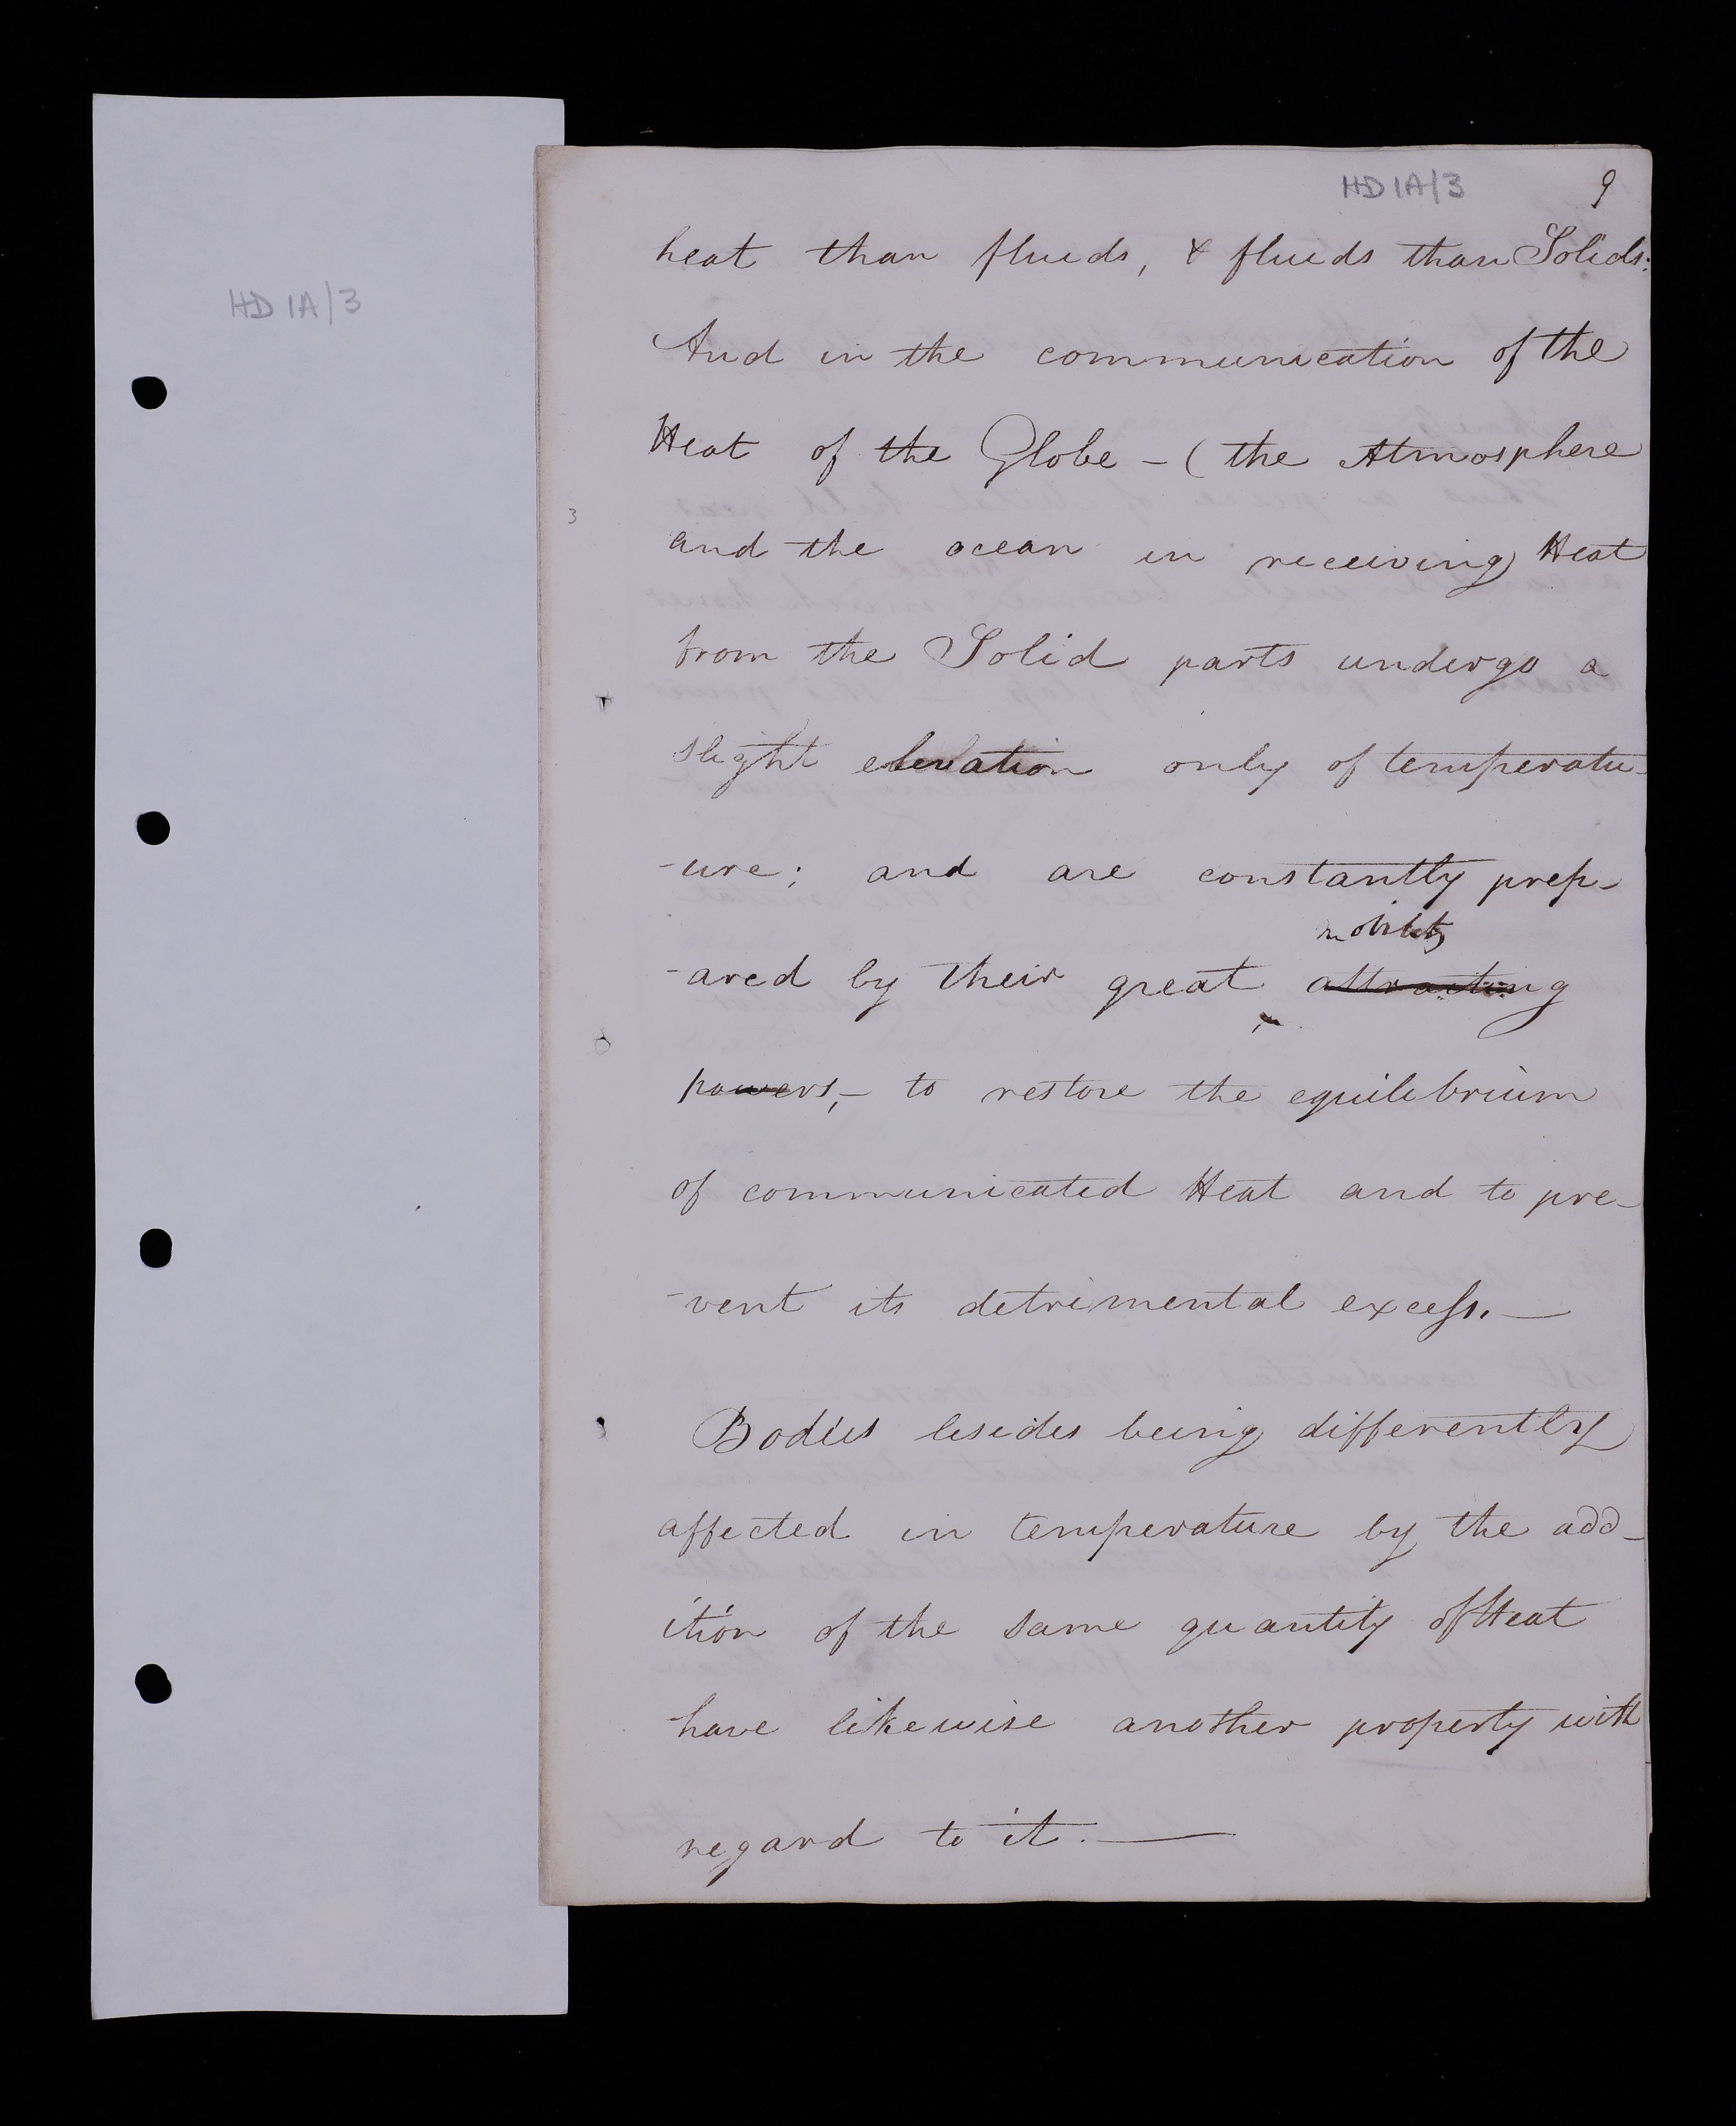 HD 1A/3
HD 1A/3 9
heat than fluids, & fluids than Solids:
And in the communication of the
Heat of the Globe – (the Atmosphere
3
and the ocean in receiving) Heat
from the Solid parts undergo a
slight elevation only of temperatu-
-ure; and are constantly prep-
mobility
-ared by their great attracting
powers,– to restore the equilibrium
of communicated Heat and to pre-
-vent its detrimental excess.—
Bodies besides being differently
affected in temperature by the add-
ition of the same quantity of Heat
have likewise another property with
regard to it.—